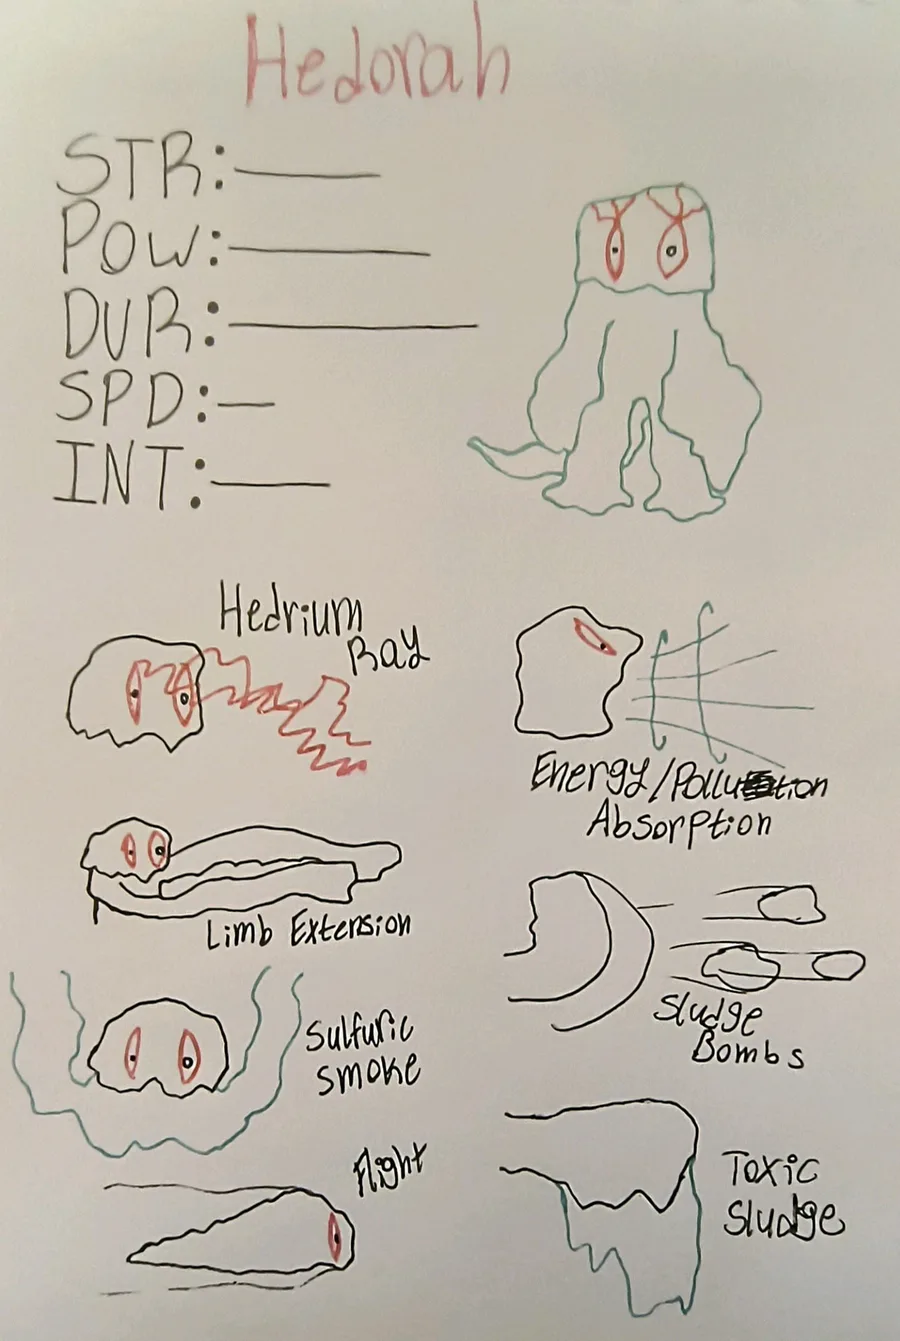 Hedorah
STR:
POW:
DUR:
SPD:
INT:
Hedrium
Ray
Energy/Pollution
Absorption
Limb Extension
Sludge
Bombs
Sulfuric
smoke
Flight
Toxic
Sludge